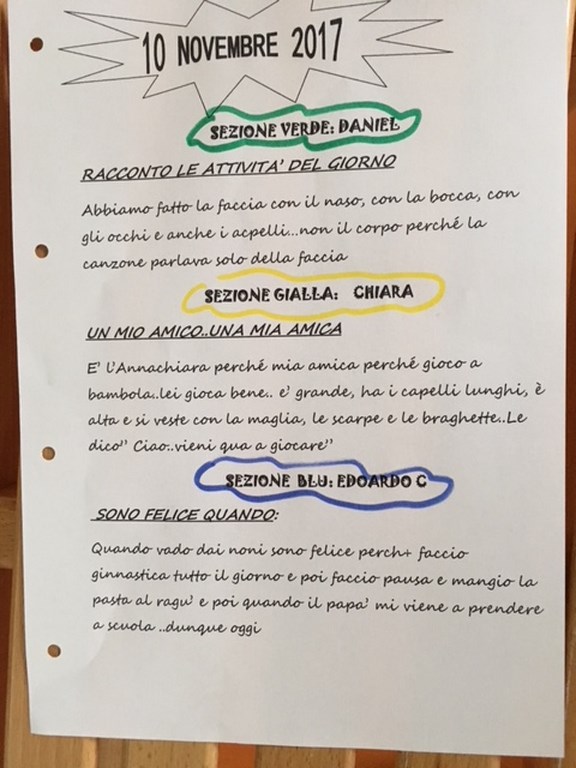 10 NOVEMBRE 2017
SEZIONE VERDE: DANIEL
RACCONTO LE ATTIVITA' DEL GIORNO
Abbiamo fatto la faccia con il naso, con la bocca, con
gli occhi e anche i acpelli...non il corpo perché la
canzone parlava solo della faccia
SEZIONE GIALLA: CHIARA
UN MIO AMICO..UNA MIA AMICA
E' l'Annachiara perché mia amica perché gioco a
bambola..lei gioca bene.. e' grande, ha i capelli lunghi, è
alta e si veste con la maglia, le scarpe e le braghette..Le
dico" Ciao..vieni qua a giocare"
SEZIONE BLU: EDOARDO C
SONO FELICE QUANDO:
Quando vado dai noni sono felice perch+ faccio
ginnastica tutto il giorno e poi faccio pausa e mangio la
pasta al ragu' e poi quando il papa' mi viene a prendere
a scuola ..dunque oggi